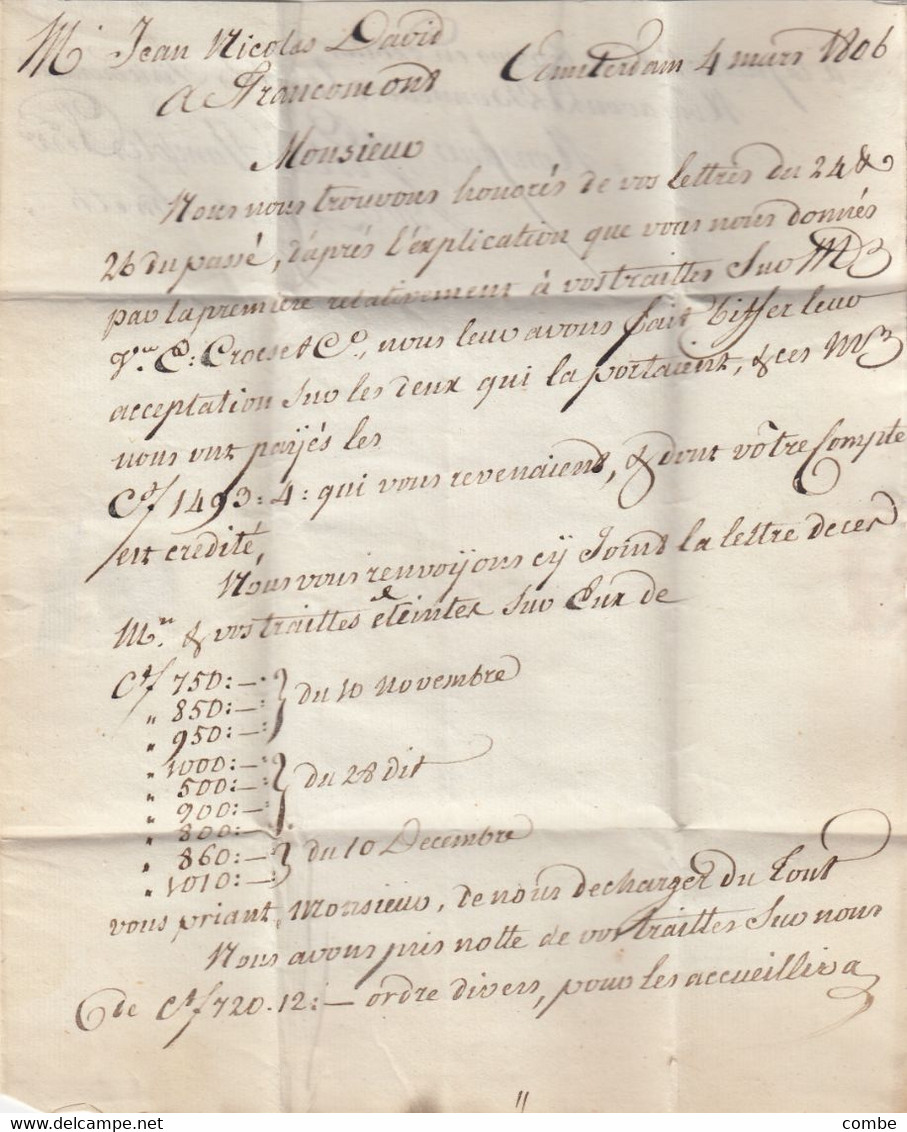 Mr. Jean Nicolas David
Amsterdam 4 mars 1806
A Francomont
Monsieur
Nous nous trouvons honorés de vos lettres du 24 &
26 du passé, d'après l'explication que vous nous donnés
par la première relativement à vos traittes sur MM
Ve. E: Croese & Co., nous leur avons fait biffer leur
acceptation sur les deux qui la portaient, & ces MM
nous ont payés les
Ct f 1493: 4: qui vous revenaiend, & dont vôtre Compte
est crédité,
Nous vous renvoyons cy Joind la lettre de ces
Mrs. & vos traittes éteintes sur Eux de
Ct f 750:—: } du 10 novembre
" 850:—:
" 950:—:
" 1000:—: } du 28 dit
" 500:—:
" 900:—:
" 800:—:
" 860:—: } du 10 Decembre
" 1010:—:
vous priant, Monsieur, de nous decharger du Tout
Nous avons pris notte de vos traittes sur nous
de Ct f 720.12:— ordre divers, pour les accueillir a
delcampe.net
combe